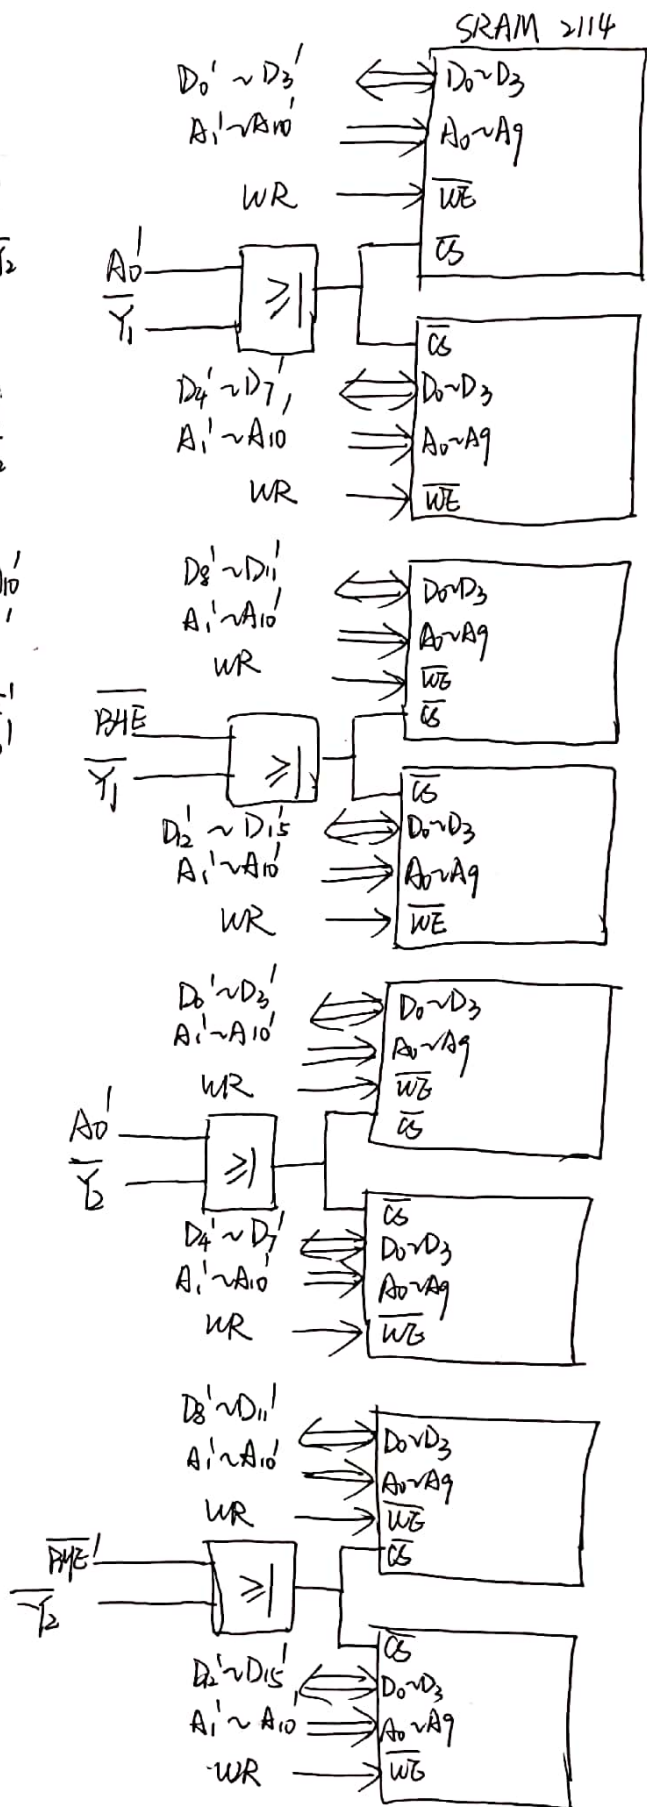 SRAM 2114
D0' ~ D3' D0~D3
A1'~A10' A0~A9
WR W̅E̅
C̅S̅
A0'
Y̅1̅ ≥1
C̅S̅
D4'~D7' D0~D3
A1'~A10' A0~A9
WR W̅E̅
D8'~D11' D0~D3
A1'~A10' A0~A9
WR W̅E̅
C̅S̅
B̅H̅E̅
Y̅1̅ ≥1
C̅S̅
D12' ~ D15' D0~D3
A1'~A10' A0~A9
WR W̅E̅
D0'~D3' D0~D3
A1'~A10' A0~A9
WR W̅E̅
C̅S̅
A0'
Y̅2̅ ≥1
C̅S̅
D4'~D7' D0~D3
A1'~A10' A0~A9
WR W̅E̅
D8'~D11' D0~D3
A1'~A10' A0~A9
WR W̅E̅
C̅S̅
B̅H̅E̅'
Y̅2̅ ≥1
C̅S̅
D12'~D15' D0~D3
A1'~A10' A0~A9
WR W̅E̅